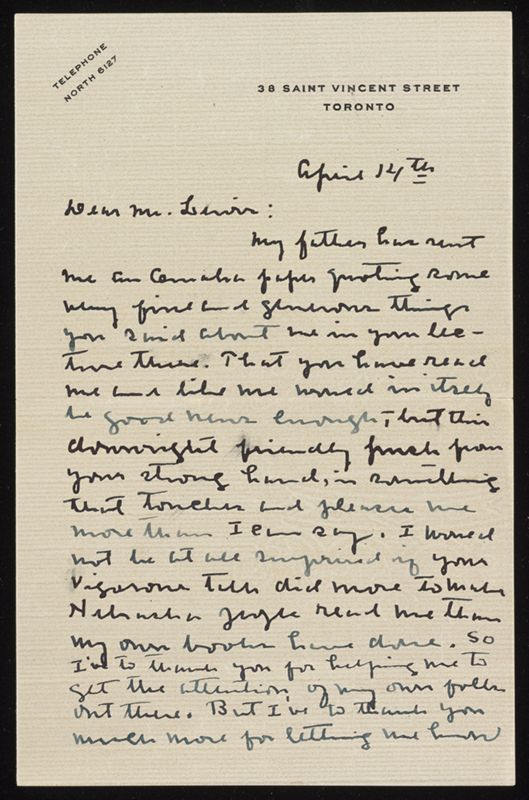 TELEPHONE
NORTH 6127
38 SAINT VINCENT STREET
TORONTO
April 14th
Dear Mr. Lewis:
My father has sent
me an Omaha paper quoting some
very fine and generous things
you said about me in your lec-
ture there. That you have read
me and like me would in itself
be good news enough; but this
downright friendly push from
your strong hand, is something
that touches and pleases me
more than I can say. I would
not be at all surprised if your
vigorous talk did more to make
Nebraska people read me than
my own books have done. So
I've to thank you for helping me to
get the attention of my own folks
out there. But I've to thank you
much more for letting me know